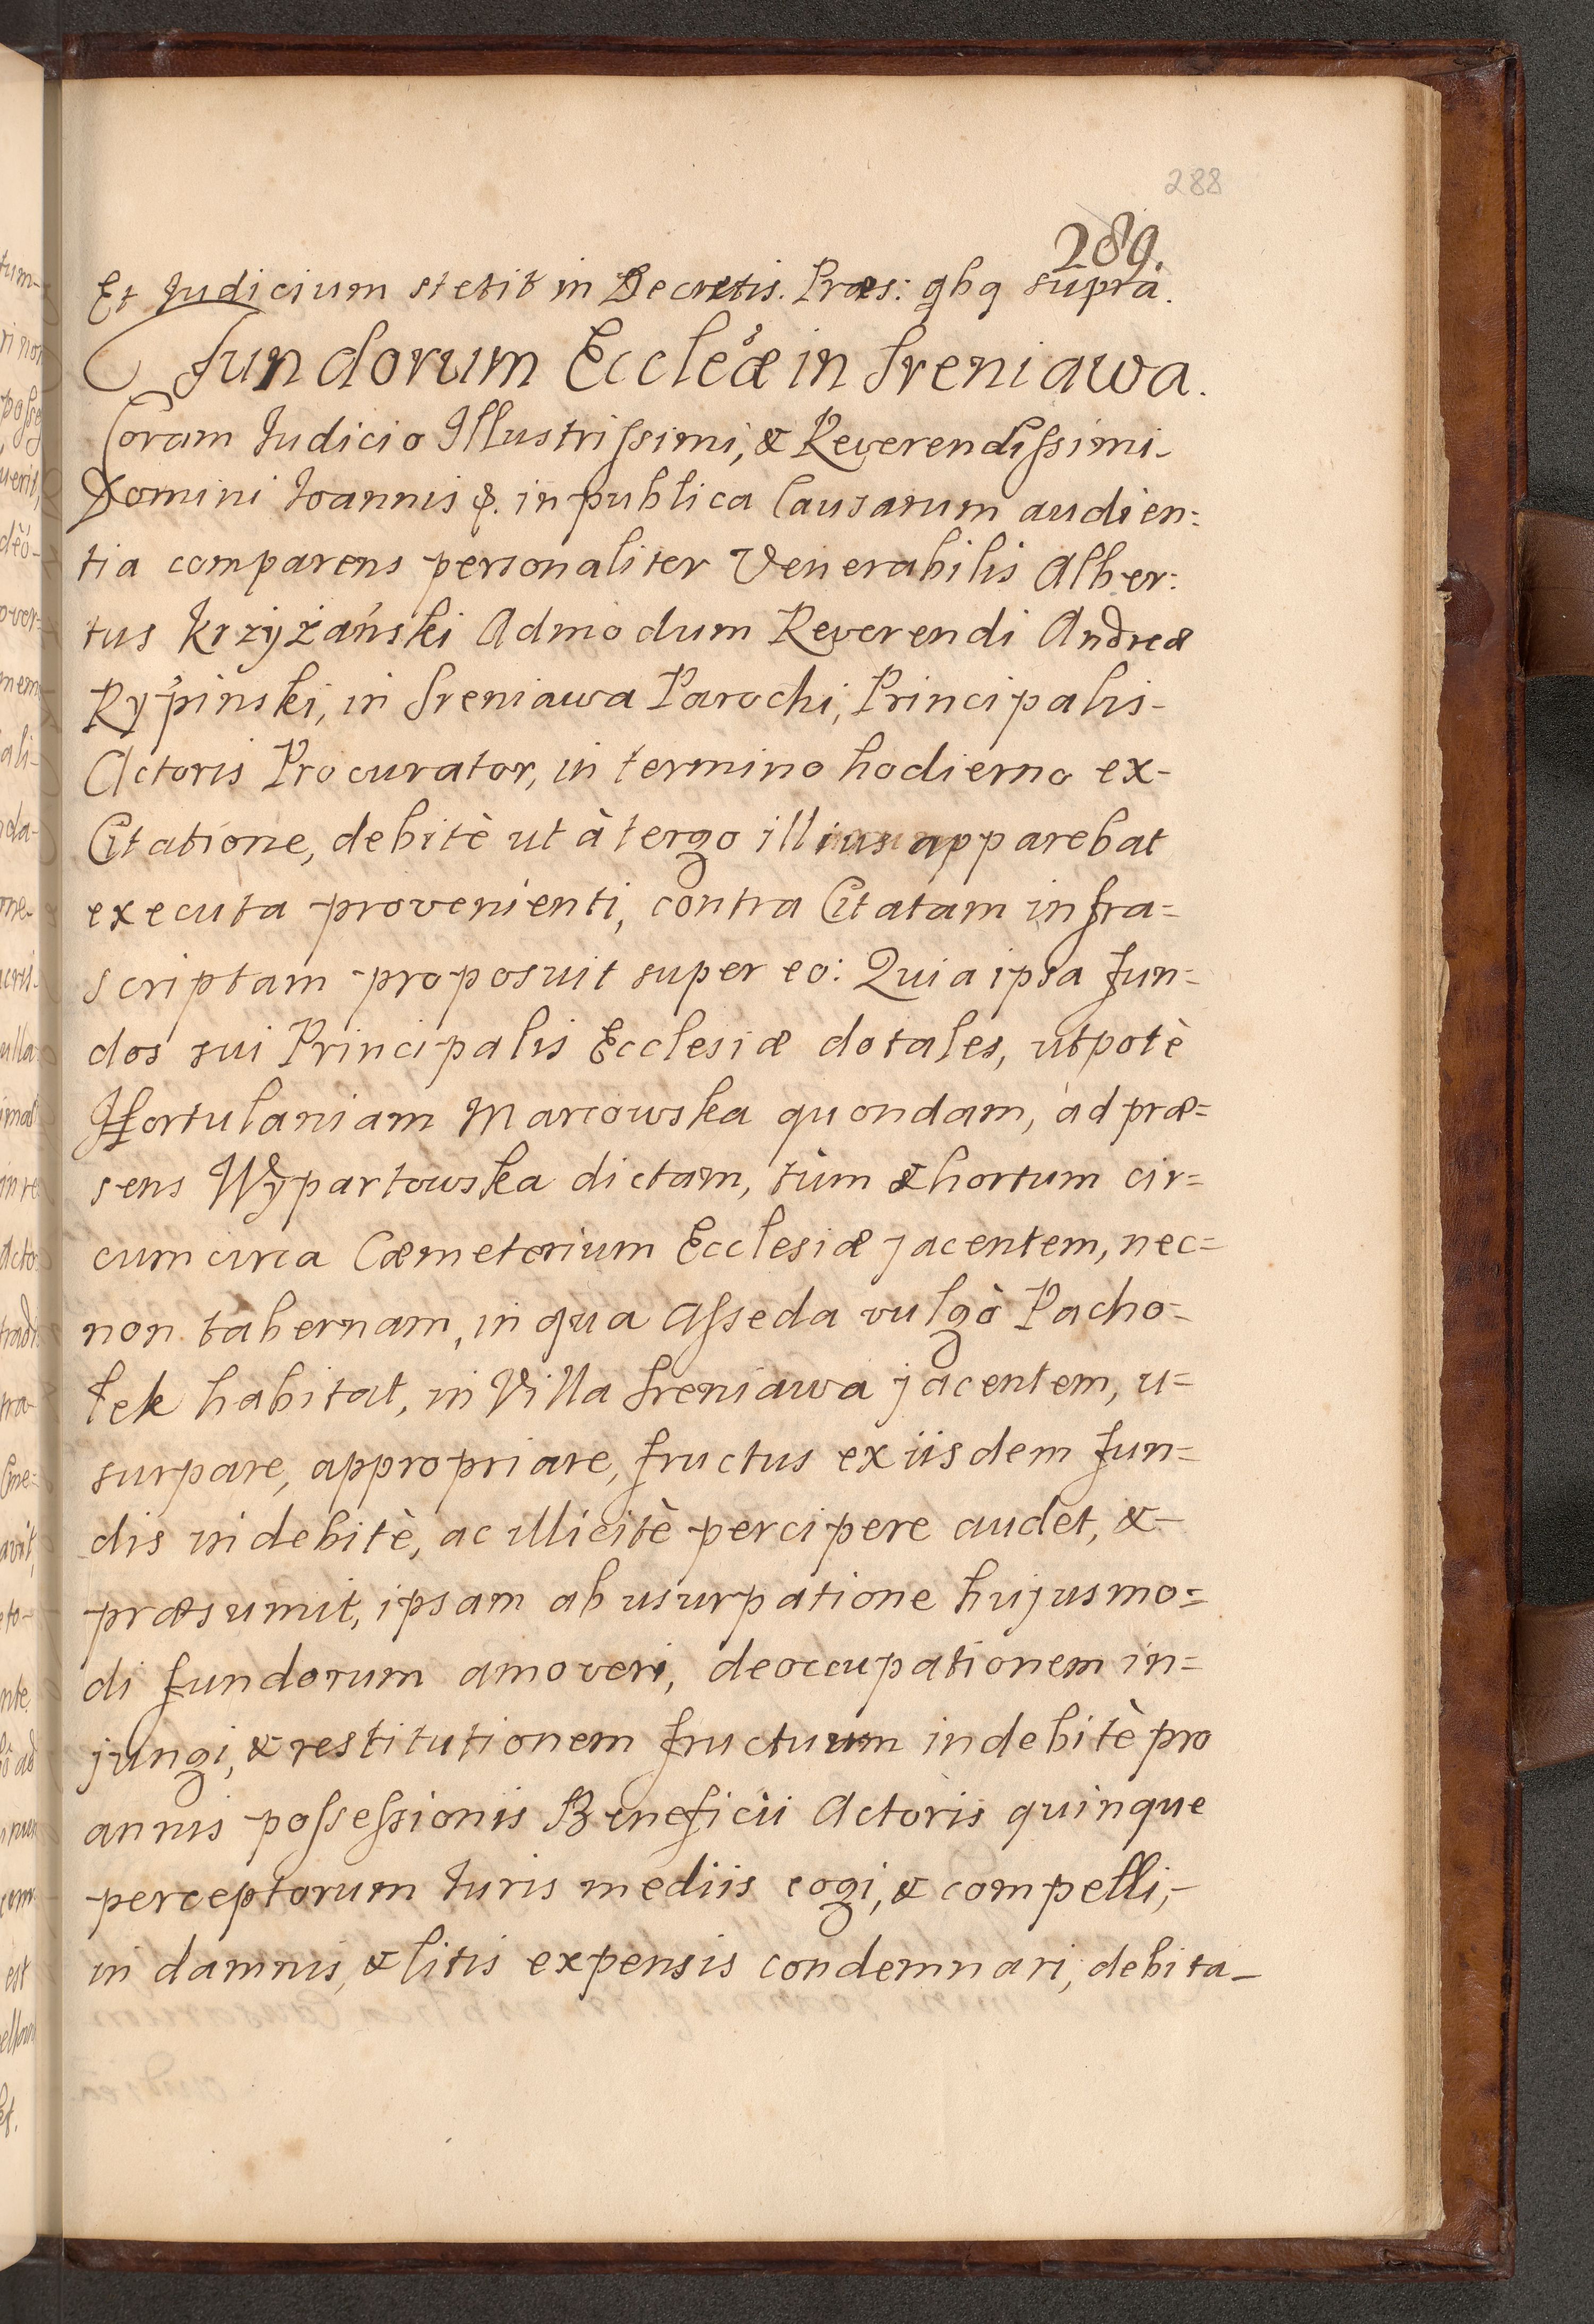 288
289.
Et Iudicium stetit in Decretis. Præs: qbq supra.
Fundorum Eccleæ in Sreniawa.
Coram Iudicio Illustrissimi, & Reverendissimi-
Domini Ioannis &. in publica Causarum audien=
tia comparens personaliter Venerabilis Alber:
tus Krzyżański Admodum Reverendi Andreæ
Rypinski, in Sreniawa Parochi, Principalis-
Actoris Procurator, in termino hodierno ex-
Citatione, debitè ut à tergo illius apparebat
executa provenienti, contra Citatam infra=
scriptam proposuit super eo: Quia ipsa fun=
dos sui Principalis Ecclesiæ dotales, utpotè
Hortulaniam Marcowska quondam, ad præ=
sens Wypartowska dictam, tùm & hortum cir=
cum circa Cæmeterium Ecclesiæ jacentem, nec=
non tabernam, in qua Asseda vulgò Pacho=
łek habitat, in Villa Sreniawa jacentem, u=
surpare, appropriare, fructus ex iisdem fun=
dis indebitè, ac illicitè percipere audet, &-
præsumit, ipsam ab usurpatione hujusmo=
di fundorum amoveri, deoccupationem in=
jungi, & restitutionem fructuum indebitè pro
annis possessionis Beneficii Actoris quinque
perceptorum Iuris mediis cogi, & compelli,-
in damnis, & litis expensis condemnari, debita-